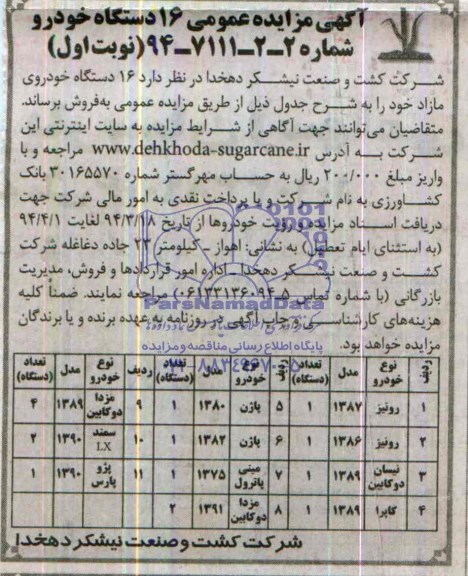 آگهی مزایده عمومی ۱۶ دستگاه خودرو
شماره ۲-۲-۷۱۱۱-۹۴ (نوبت اول)
شرکت کشت و صنعت نیشکر دهخدا در نظر دارد ۱۶ دستگاه خودروی
مازاد خود را به شرح جدول ذیل از طریق مزایده عمومی به‌فروش برساند.
متقاضیان می‌توانند جهت آگاهی از شرایط مزایده به سایت اینترنتی این
شرکت به آدرس www.dehkhoda-sugarcane.ir مراجعه و با
واریز مبلغ ۲۰۰/۰۰۰ ریال به حساب مهرگستر شماره ۳۰۱۶۵۵۷۰ بانک
کشاورزی به نام شرکت و یا پرداخت نقدی به امور مالی شرکت جهت
دریافت اسناد مزایده و رویت خودروها از تاریخ ۹۴/۳/۱۸ لغایت ۹۴/۴/۱
(به استثنای ایام تعطیل) به نشانی: اهواز - کیلومتر ۲۳ جاده دغاغله شرکت
کشت و صنعت نیشکر دهخدا - اداره امور قراردادها و فروش، مدیریت
بازرگانی (با شماره تماس ۵-۰۶۱۳۳۱۳۶۰۹۴) مراجعه نمایند. ضمناً کلیه
هزینه‌های کارشناسی و چاپ آگهی در روزنامه به عهده برنده و یا برندگان
مزایده خواهد بود.
ParsNamadData
پایگاه اطلاع رسانی مناقصه و مزایده
ردیف نوع خودرو مدل تعداد (دستگاه) ردیف نوع خودرو مدل تعداد (دستگاه) ردیف نوع خودرو مدل تعداد (دستگاه)
۱ رونیز ۱۳۸۷ ۱ ۵ پاژن ۱۳۸۰ ۱ ۹ مزدا دوکابین ۱۳۸۹ ۴
۲ رونیز ۱۳۸۶ ۱ ۶ پاژن ۱۳۸۲ ۱ ۱۰ سمند LX ۱۳۹۰ ۲
۳ نیسان دوکابین ۱۳۸۹ ۱ ۷ مینی پاترول ۱۳۷۵ ۱ ۱۱ پژو پارس ۱۳۹۰ ۱
۴ کاپرا ۱۳۸۹ ۱ ۸ مزدا دوکابین ۱۳۹۱ ۲
شرکت کشت و صنعت نیشکر دهخدا